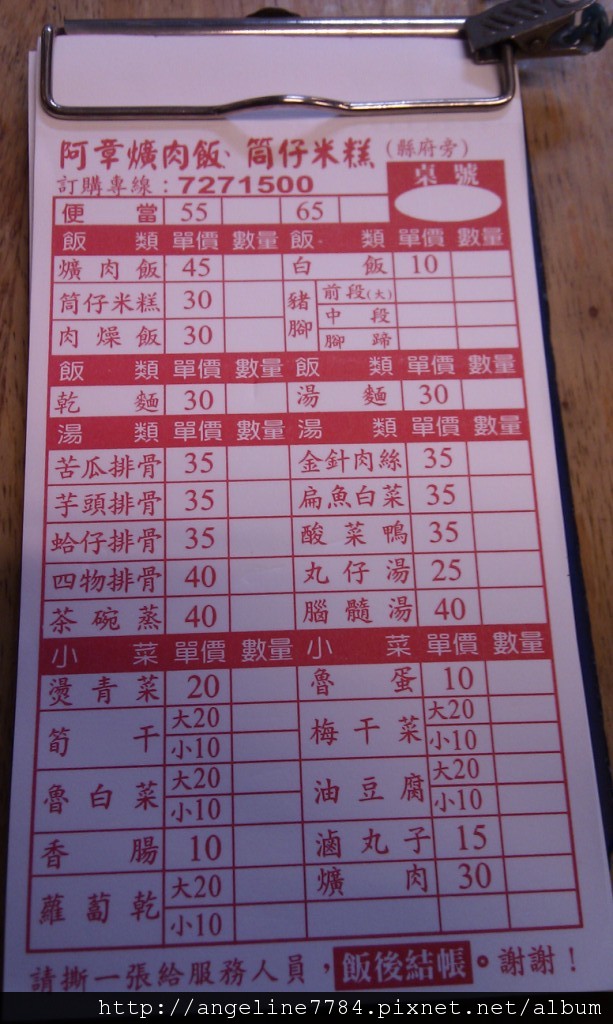 阿章爌肉飯、筒仔米糕(縣府旁)
訂購專線：7271500 桌號
便當 55 65
飯類 單價 數量 飯類 單價 數量
爌肉飯 45 白飯 10
筒仔米糕 30 豬腳 前段(大)
中段
肉燥飯 30 腳蹄
飯類 單價 數量 飯類 單價 數量
乾麵 30 湯麵 30
湯類 單價 數量 湯類 單價 數量
苦瓜排骨 35 金針肉絲 35
芋頭排骨 35 扁魚白菜 35
蛤仔排骨 35 酸菜鴨 35
四物排骨 40 丸仔湯 25
茶碗蒸 40 腦髓湯 40
小菜 單價 數量 小菜 單價 數量
燙青菜 20 魯蛋 10
筍干 大20 梅干菜 大20
小10 小10
魯白菜 大20 油豆腐 大20
小10 小10
香腸 10 滷丸子 15
蘿蔔乾 大20 爌肉 30
小10
請撕一張給服務人員，飯後結帳。謝謝！
http://angeline7784.pixnet.net/album